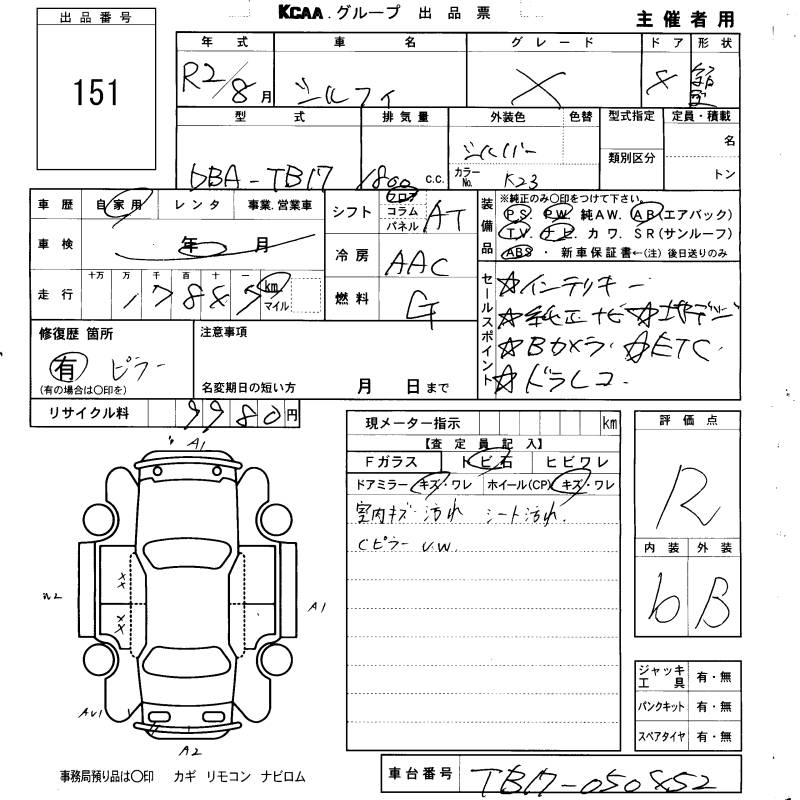 出品番号
151
KCAA.グループ 出品票
主催者用
年式 車名 グレード ドア 形状
R2/8月 シルフィ X 4
型式 排気量 外装色 色替 型式指定 定員・積載
類別区分
名
トン
DBA-TB17 1800 c.c. シルバー
カラーNo. K23
車歴 自家用 レンタ 事業.営業車
車検 年 月
走行 十万 万 千 百 十 一 km マイル
シフト フロア コラム パネル AT
冷房 AAC
燃料 G
装備品
※純正のみ〇印をつけて下さい。
PS. PW. 純AW. AB(エアバック)
TV. ナビ. カワ. SR(サンルーフ)
ABS ・ 新車保証書←(注)後日送りのみ
セールスポイント
☆インテリキー
☆純正ナビ ☆地デジ
☆Bカメラ ☆ETC
☆ドラレコ
修復歴 箇所
有 ピラー
(有の場合は〇印を)
注意事項
名変期日の短い方 月 日まで
リサイクル料 9980円
現メーター指示 km
【査定員記入】
Fガラス トビ石 ヒビワレ
ドアミラー キズ・ワレ ホイール(CP) キズ・ワレ
室内キズ 汚れ シート汚れ.
Cピラー UW.
評価点
R
内装 外装
b B
ジャッキ工具 有・無
パンクキット 有・無
スペアタイヤ 有・無
A1
XX
XX
W2
A1
AU1
A2
事務局預り品は〇印 カギ リモコン ナビロム
車台番号 TB17-050852